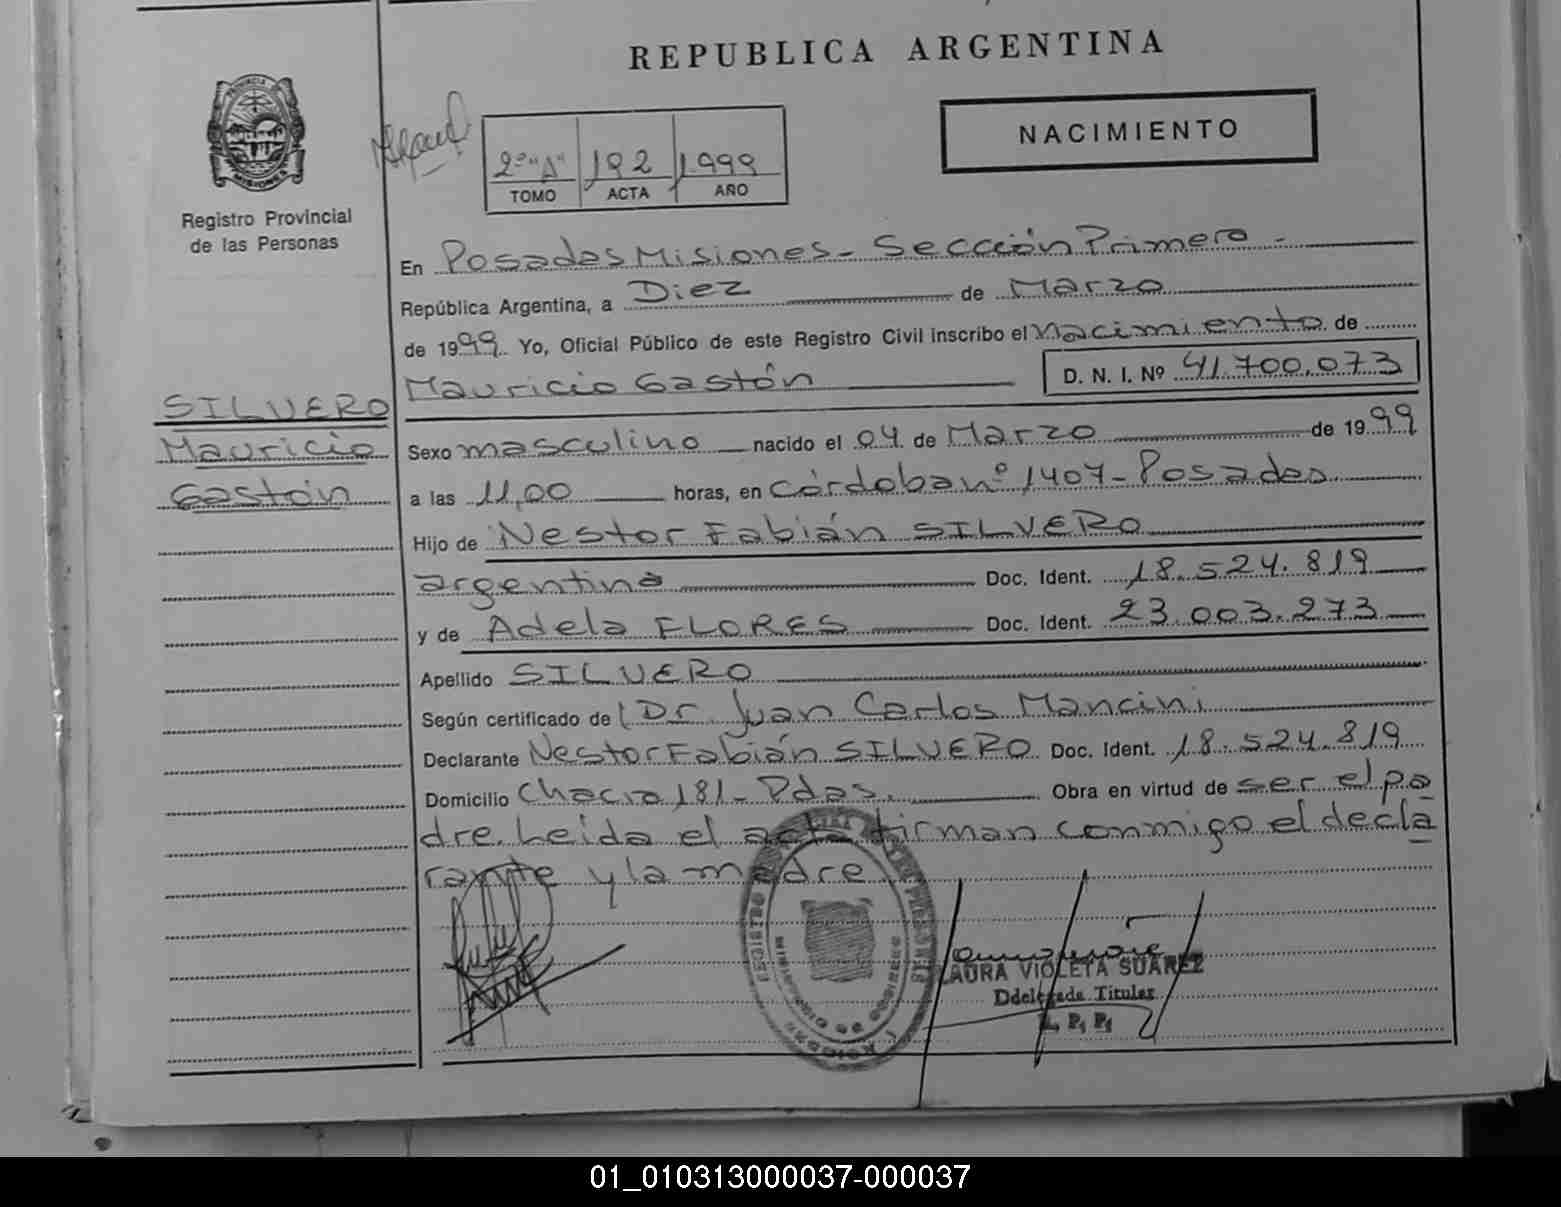 REPUBLICA ARGENTINA
PROVINCIA DE
MISIONES
Registro Provincial
de las Personas
2º "A" 192 1.999
TOMO ACTA AÑO
NACIMIENTO
En Posadas Misiones - Sección Primera -
República Argentina, a Diez de Marzo
de 1999. Yo, Oficial Público de este Registro Civil inscribo el Nacimiento de
Mauricio Gastón D. N. I. Nº 41.700.073
SILVERO
Mauricio
Gastón
Sexo masculino nacido el 04 de Marzo de 1999
a las 11,00 horas, en Córdoba nº 1407 - Posadas
Hijo de Nestor Fabián SILVERO
argentina Doc. Ident. 18.524.819
y de Adela FLORES Doc. Ident. 23.003.273
Apellido SILVERO
Según certificado de Dr. Juan Carlos Mancini
Declarante Nestor Fabián SILVERO Doc. Ident. 18.524.819
Domicilio Chacra 181 - Pdas. Obra en virtud de ser el pa
dre. Leída el acta firman conmigo el decla
rante y la madre
LAURA VIOLETA SUAREZ
Ddelegada Titular
R. P. P.
01_010313000037-000037